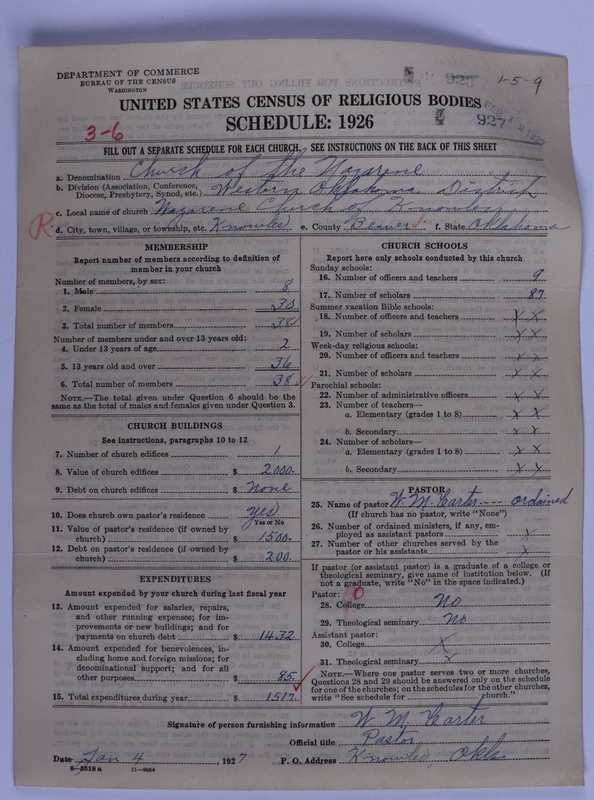 DEPARTMENT OF COMMERCE
BUREAU OF THE CENSUS
WASHINGTON
1-5-9
927
UNITED STATES CENSUS OF RELIGIOUS BODIES
SCHEDULE: 1926
927
3-6
FILL OUT A SEPARATE SCHEDULE FOR EACH CHURCH. SEE INSTRUCTIONS ON THE BACK OF THIS SHEET
a. Denomination Church of the Nazarene
b. Division (Association, Conference, Diocese, Presbytery, Synod, etc.) Western Oklahoma District
c. Local name of church Nazarene Church of Knowles
R. d. City, town, village, or township, etc. Knowles e. County Beaver f. State Oklahoma
MEMBERSHIP
Report number of members according to definition of
member in your church
Number of members, by sex:
1. Male 8
2. Female 30
3. Total number of members 38
Number of members under and over 13 years old:
4. Under 13 years of age 2
5. 13 years old and over 36
6. Total number of members 38
NOTE.—The total given under Question 6 should be the
same as the total of males and females given under Question 3.
CHURCH BUILDINGS
See instructions, paragraphs 10 to 12
7. Number of church edifices 1
8. Value of church edifices $ 2000.
9. Debt on church edifices $ None
10. Does church own pastor's residence yes
Yes or No
11. Value of pastor's residence (if owned by
church) $ 1500.
12. Debt on pastor's residence (if owned by
church) $ 200.
EXPENDITURES
Amount expended by your church during last fiscal year
13. Amount expended for salaries, repairs,
and other running expenses; for im-
provements or new buildings; and for
payments on church debt $ 1432
14. Amount expended for benevolences, in-
cluding home and foreign missions; for
denominational support; and for all
other purposes $ 85
15. Total expenditures during year $ 1517
CHURCH SCHOOLS
Report here only schools conducted by this church
Sunday schools:
16. Number of officers and teachers 9
17. Number of scholars 87
Summer vacation Bible schools:
18. Number of officers and teachers x x
19. Number of scholars x x
Week-day religious schools:
20. Number of officers and teachers x x
21. Number of scholars x x
Parochial schools:
22. Number of administrative officers x x
23. Number of teachers—
a. Elementary (grades 1 to 8) x x
b. Secondary x x
24. Number of scholars—
a. Elementary (grades 1 to 8) x x
b. Secondary x x
PASTOR
25. Name of pastor W. M. Carter ---- ordained
(If church has no pastor, write "None")
26. Number of ordained ministers, if any, em-
ployed as assistant pastors x
27. Number of other churches served by the
pastor or his assistants x
If pastor (or assistant pastor) is a graduate of a college or
theological seminary, give name of institution below. (If
not a graduate, write "No" in the space indicated.)
Pastor:
28. College No
29. Theological seminary No
Assistant pastor:
30. College x
31. Theological seminary x
NOTE.—Where one pastor serves two or more churches,
Questions 28 and 29 should be answered only on the schedule
for one of the churches; on the schedules for the other churches,
write "See schedule for church."
Signature of person furnishing information W. M. Carter
Official title Pastor
Date Jan 4, 1927 P. O. Address Knowles, Okla
8—5518 a 11—9054